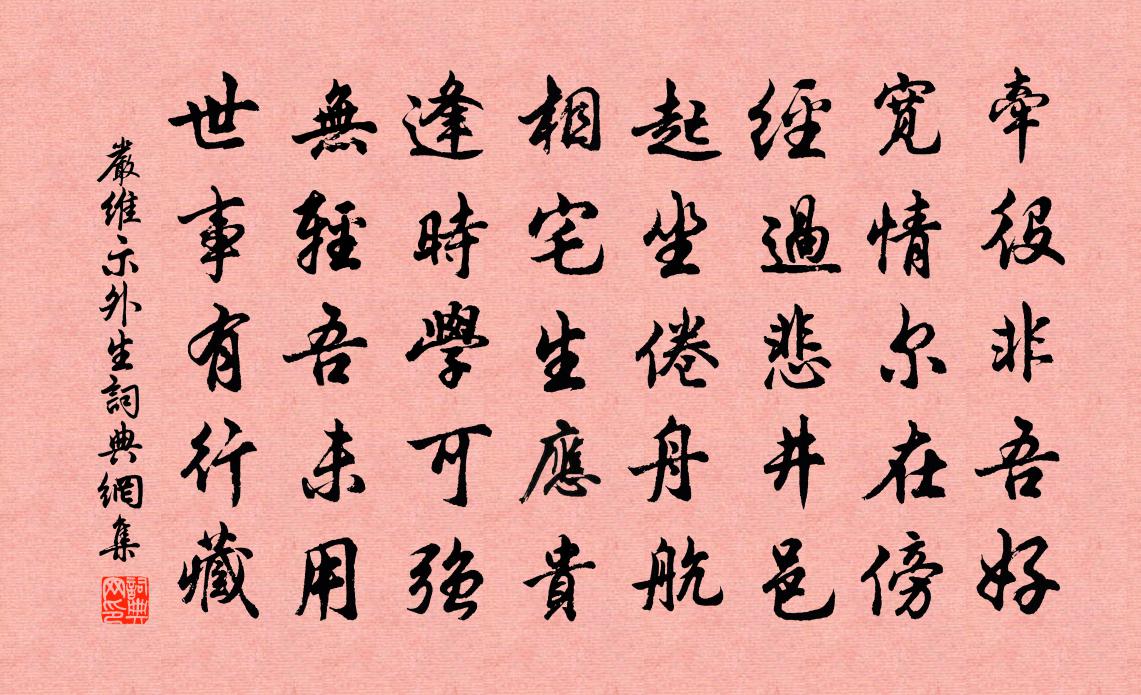 牵役非吾好
寛情尔在傍
經過悲井邑
起坐倦舟航
相宅生應貴
逢時學可強
無輕吾未用
世事有行藏
嚴維示外生詞典網集
詞典网印